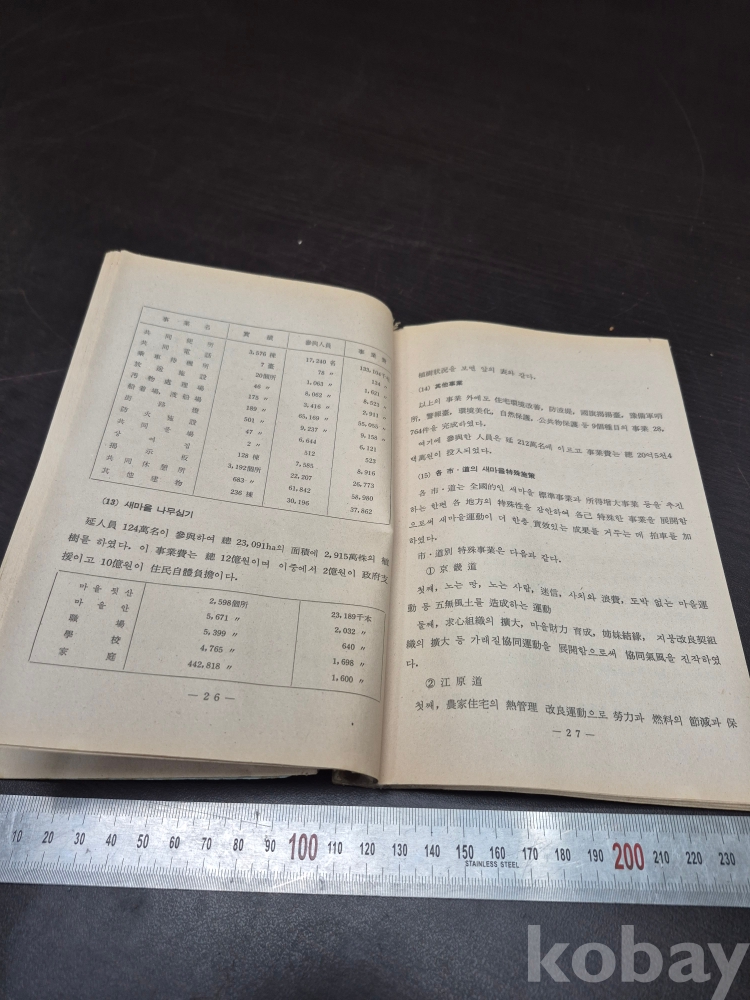 事業名 實績 參與人員 事業費
共同電話
汚物處理場
船着場, 渡船場
街路燈
防火施設
共同
揭示板
共同休憩所
其他建物
3,576 棟 17,240 名
7 臺 78 〃 134 〃
20個所 1,063 〃 1,621 〃
49 〃 8,062 〃 8,521 〃
175 〃 3,416 〃 2,911 〃
189 〃 65,169 〃 55,055 〃
501 〃 9,237 〃 9,158 〃
47 〃 6,644 6,121
2 〃 512 523
128 棟 7,585 8,916
3,192個所 22,207 26,773
683 〃 61,842 58,980
236 棟 30,196 37,862
(13) 새마을 나무심기
延人員 124萬名이 參與하여 總 23,091ha의 面積에 2,915萬株의 植
樹를 하였다. 이 事業費는 總 12億원이며 이중에서 2億원이 政府支
援이고 10億원이 住民自體負擔이다.
마을 뒷산 2,598個所 23,189千本
마을 안 5,671 〃 2,032 〃
職場 5,399 〃 640 〃
學校 4,765 〃 1,698 〃
家庭 442,818 〃 1,600 〃
— 26 —
植樹狀況을 보면 앞의 表와 같다.
(14) 其他事業
以上의 事業 外에도 住宅環境改善, 防波堤, 國旗揭揚臺, 豫備軍哨
所, 警報臺, 環境美化, 自然保護, 公共物保護 등 9個種目의 事業 28,
764件을 完成하였다.
여기에 參與한 人員은 延 212萬名에 이르고 事業費는 總 20억5천4
백萬원이 投入되었다.
(15) 各 市·道의 새마을特殊施策
各 市·道는 全國的인 새마을 標準事業과 所得增大事業 등을 추진
하는 한편 各 地方의 特殊性을 감안하여 各己 特殊한 事業을 展開함
으로써 새마을運動이 더 한층 實效있는 成果를 거두는 데 拍車를 加
하였다.
市·道別 特殊事業은 다음과 같다.
① 京畿道
첫째, 노는 땅, 노는 사람, 迷信, 사치와 浪費, 도박 없는 마을運
動 등 五無風土를 造成하는 運動
둘째, 求心組織의 擴大, 마을財力 育成, 姉妹結緣, 지붕改良契組
織의 擴大 등 가래질協同運動을 展開함으로써 協同氣風을 진작하였
다.
② 江原道
첫째, 農家住宅의 熱管理 改良運動으로 勞力과 燃料의 節減과 保
— 27 —
10 20 30 40 50 60 70 80 90 100 110 120 130 140 150 160 170 180 190 200 210 220 230
STAINLESS STEEL
kobay